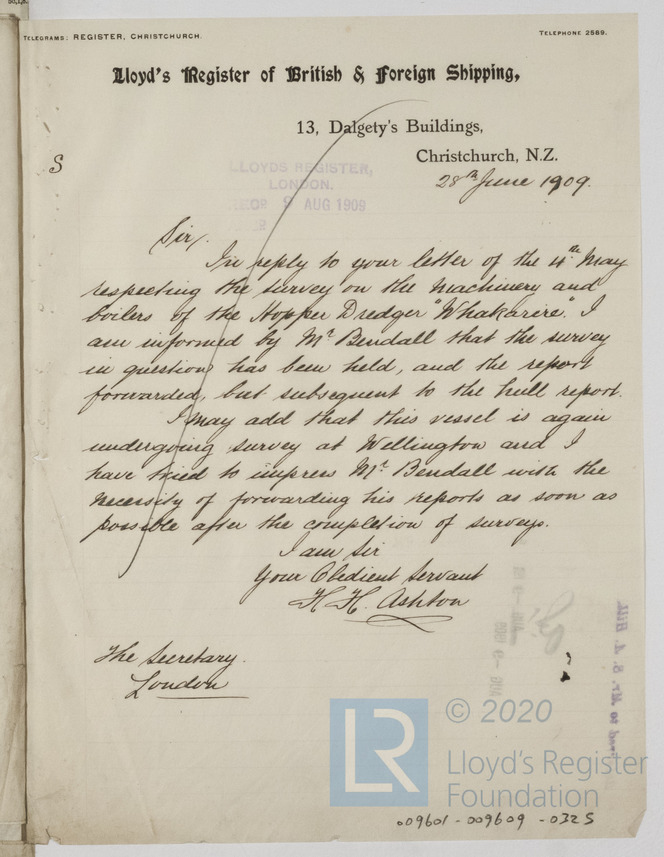 TELEGRAMS: REGISTER, CHRISTCHURCH.
TELEPHONE 2589.
Lloyd's Register of British & Foreign Shipping,
13, Dalgety's Buildings,
Christchurch, N.Z.
28th June 1909.
S
LLOYDS REGISTER,
LONDON.
9 AUG 1909
Sir,
In reply to your letter of the 4th May
respecting the survey on the machinery and
boilers of the Hopper Dredger "Whakarire". I
am informed by Mr Bendall that the survey
in question has been held, and the report
forwarded, but subsequent to the hull report.
I may add that this vessel is again
undergoing survey at Wellington and I
have tried to impress Mr Bendall with the
necessity of forwarding his reports as soon as
possible after the completion of surveys.
I am Sir
Your Obedient Servant
H. H. Ashton
The Secretary.
London
© 2020
LR
Lloyd's Register
Foundation
009601-009609-0325